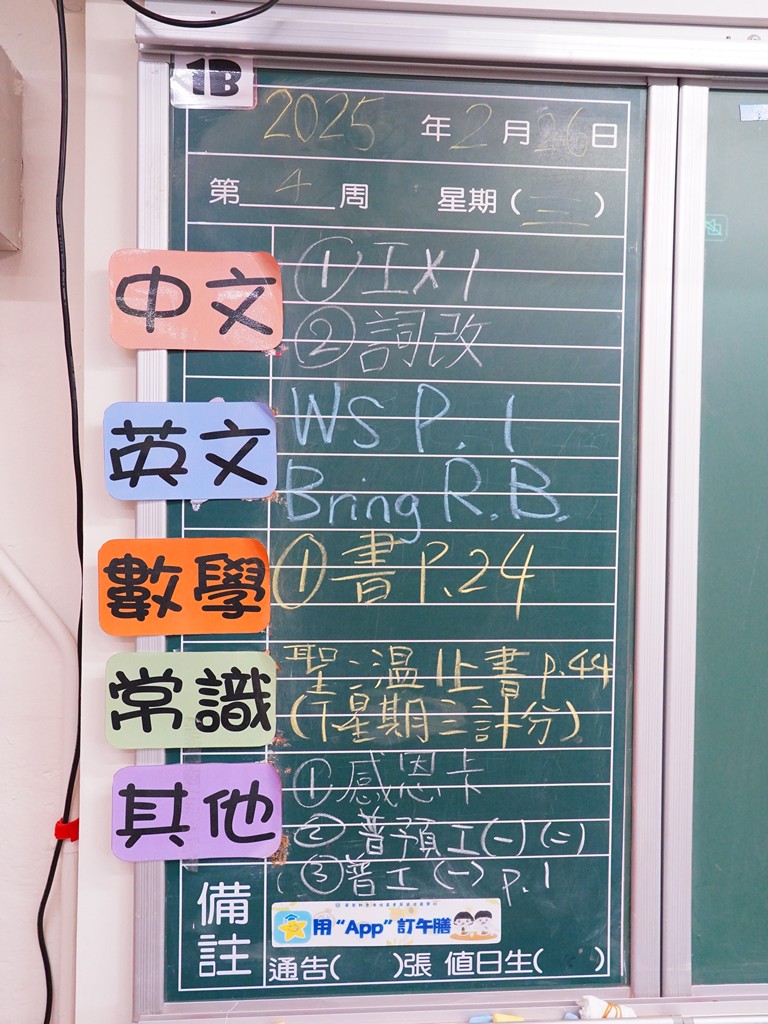 1B
2025年2月26日
第4周 星期(三)
中文
① 工X1
② 詞改
英文
WS P. 1
Bring R.B.
數學
① 書P.24
常識
聖:溫 書p.44
(下星期三評分)
其他
① 感恩卡
② 普預工(一)(二)
③ 普工(一) p.1
備註
用“App”訂午膳
通告( )張 值日生( )